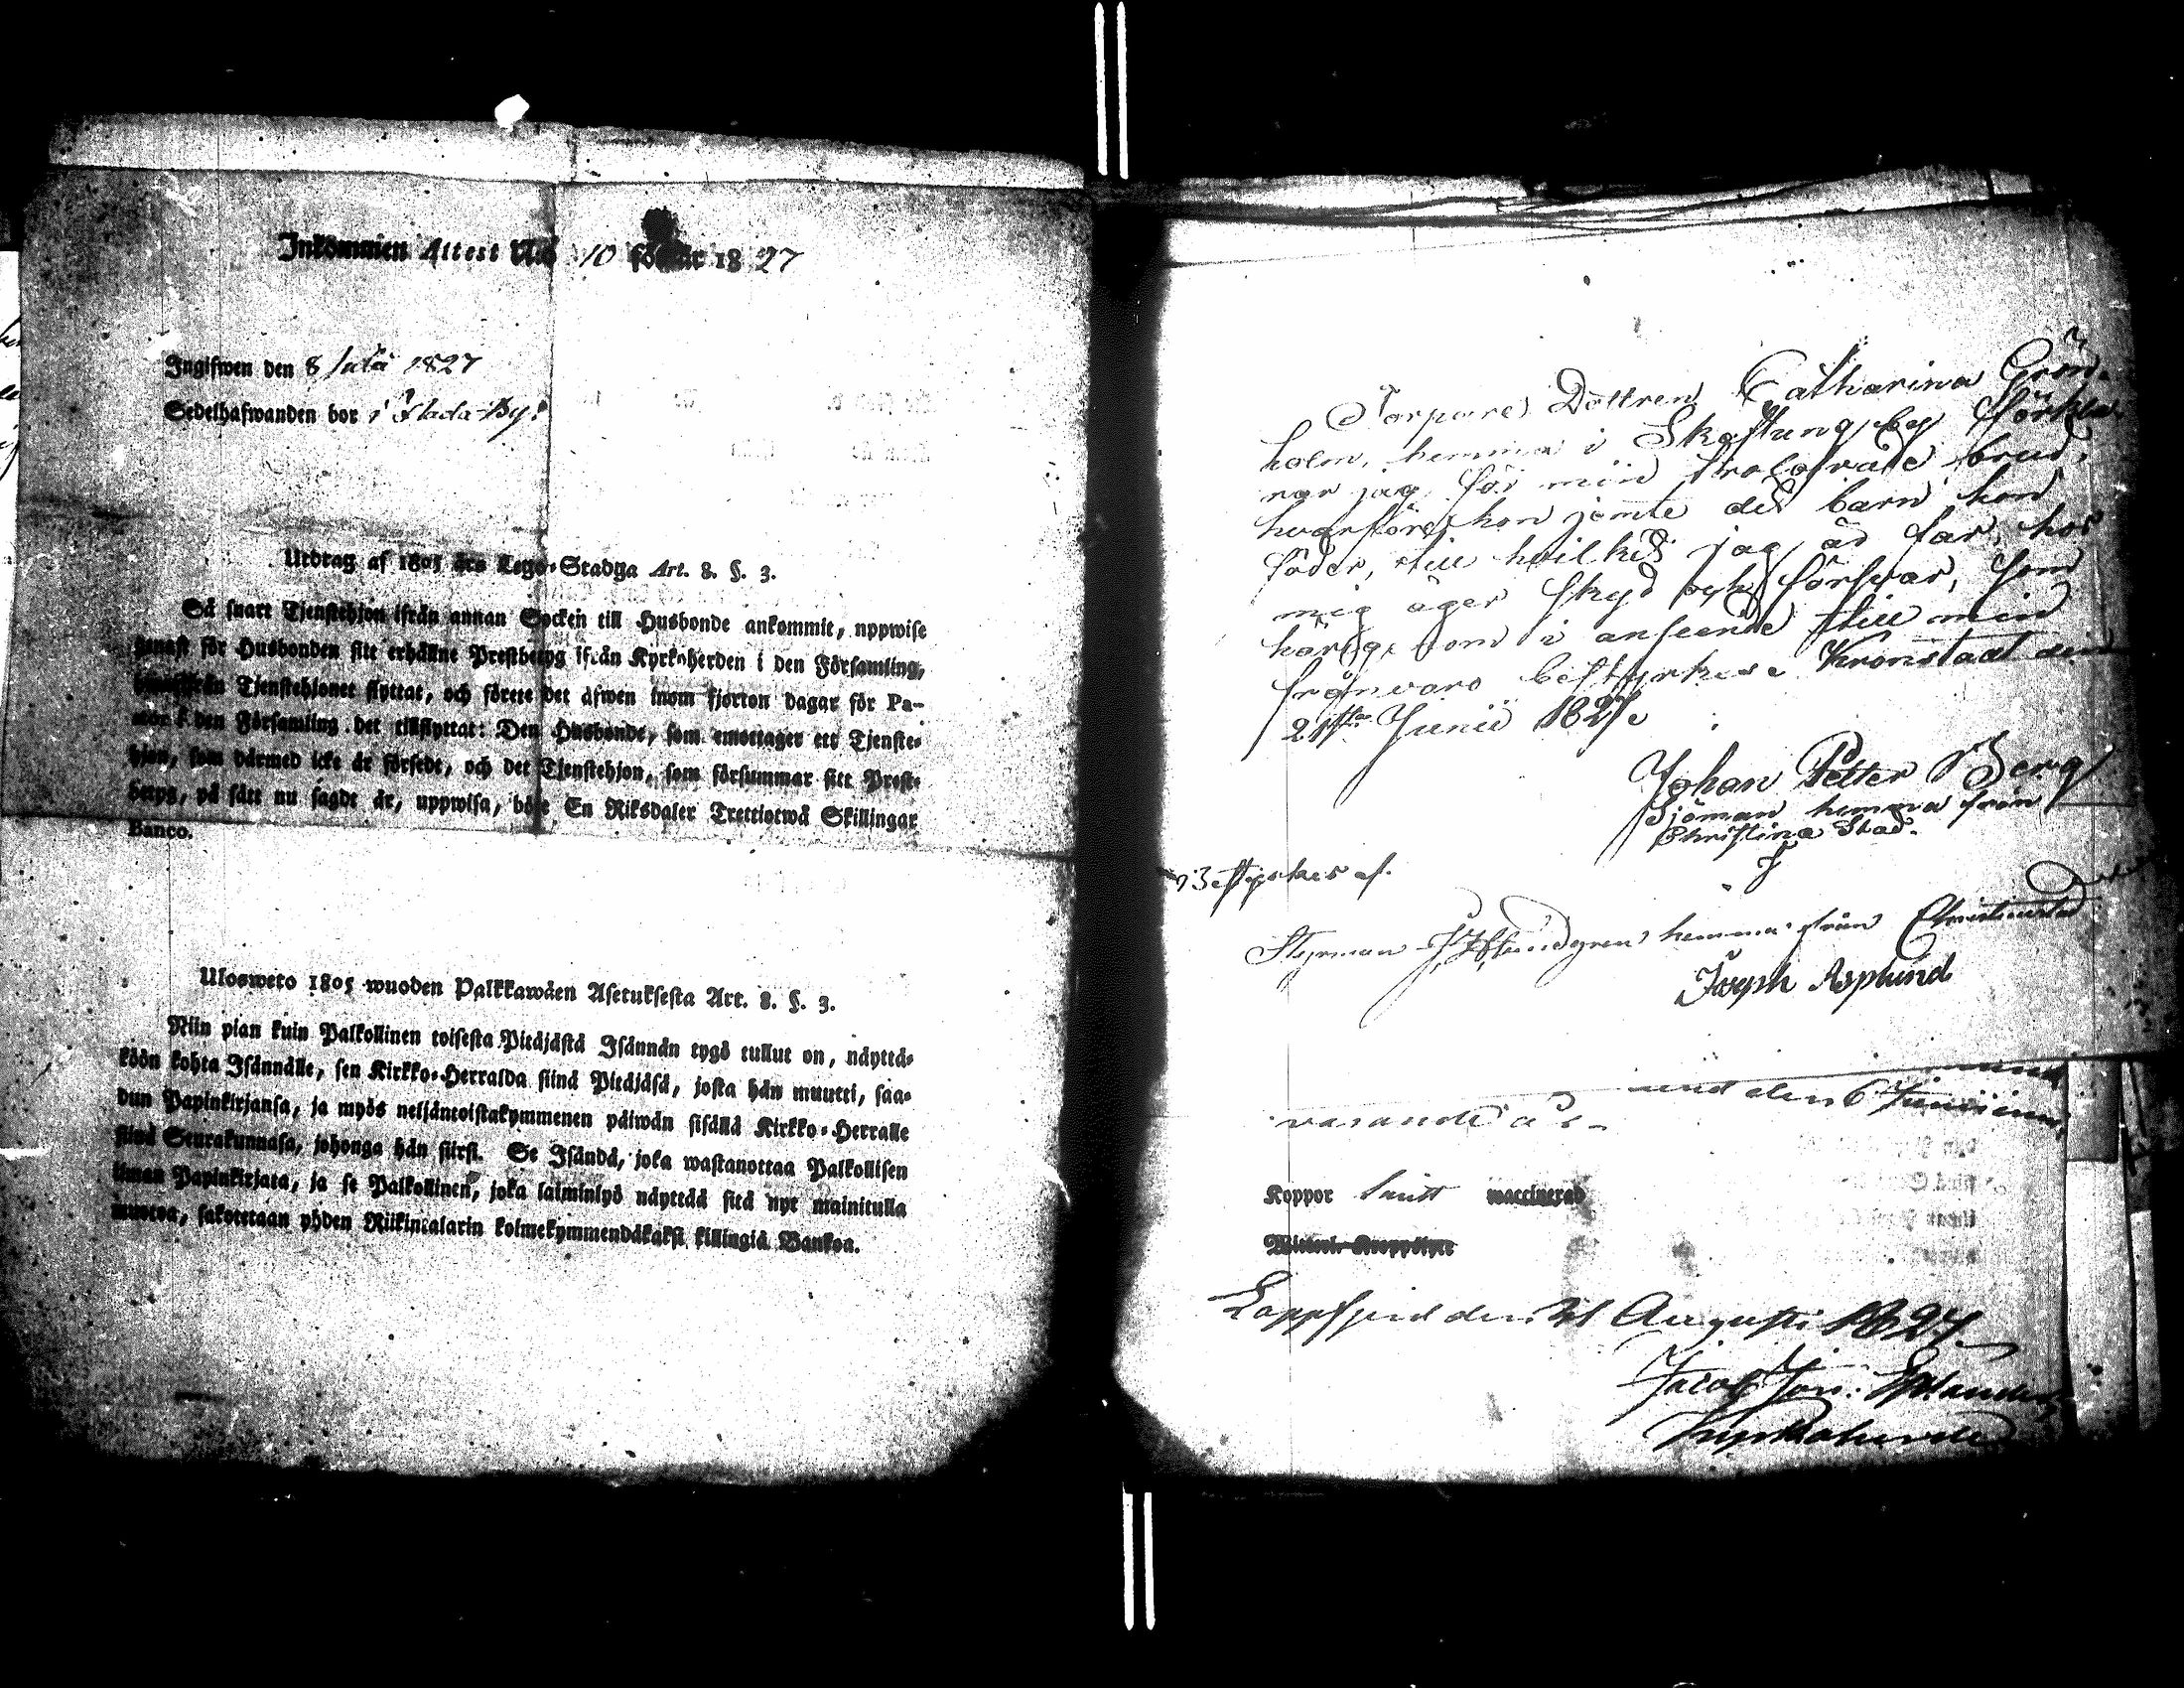 Inkommen Attest No 10 för år 1827
Ingifwen den 8 Julii 1827
Sedelhafwanden bor i Flada By.
Utdrag af 1805 års Lego-Stadga Art. 8. §. 3.
Så snart Tjenstehjon ifrån annan Socken till Husbonde ankommit, uppwise
genast för Husbonden sitt erhållne Prestbetyg ifrån Kyrkoherden i den Församling,
hwarifrån Tjenstehjonet flyttat, och förete det äfwen inom fjorton dagar för Pa-
stor i den Församling det tillflyttat: Den Husbonde, som emottager ett Tjenste-
hjon, som därmed icke är försedt, och det Tjenstehjon, som försummar sitt Prest-
betyg, på sätt nu sagdt är, uppwisa, böte En Riksdaler Trettiotwå Skillingar
Banco.
Ulosweto 1805 wuoden Palkkawäen Asetuksesta Art. 8. §. 3.
Niin pian kuin Palkollinen toisesta Pitäjästä Isännän tygö tullut on, näyttä-
köön kohta Isännälle, sen Kirkko-Herralda siinä Pitäjäsä, josta hän muutti, saa-
dun Papinkirjansa, ja myös neljäntoistakymmenen päiwän sisällä Kirkko-Herralle
siinä Seurakunnasa, johonga hän siirsi. Se Isändä, joka wastanottaa Palkollisen
ilman Papinkirjata, ja se Palkollinen, joka laiminlyö näyttää sitä nyt mainitulla
muotoa, sakotetaan yhden Riikintalarin kolmekymmendäkaksi killingiä Bankoa.
Torpare Dottren Catharina Grön-
holm, hemma i Skaftung by förkla-
rar jag för min trolofvade brud,
hvarföre hon jemte det barn hon
föder, till hvilket jag är far, hos
mig äger skyd och försvar, som
härig. om i anseende till min
frånvaro bestyrkes. Kronstadt den
21sta Junii 1827.
Johan Petter Berg
Sjöman hemma från
Christina Stad.
Bestyrkes af.
Styrman hemma från Christinestad
Joseph Asplund
und den 6 Junii
varande år.
Koppor haft vaccinerad
Lappfjerd den 21 Augusti 1827.
Jacob Jon.